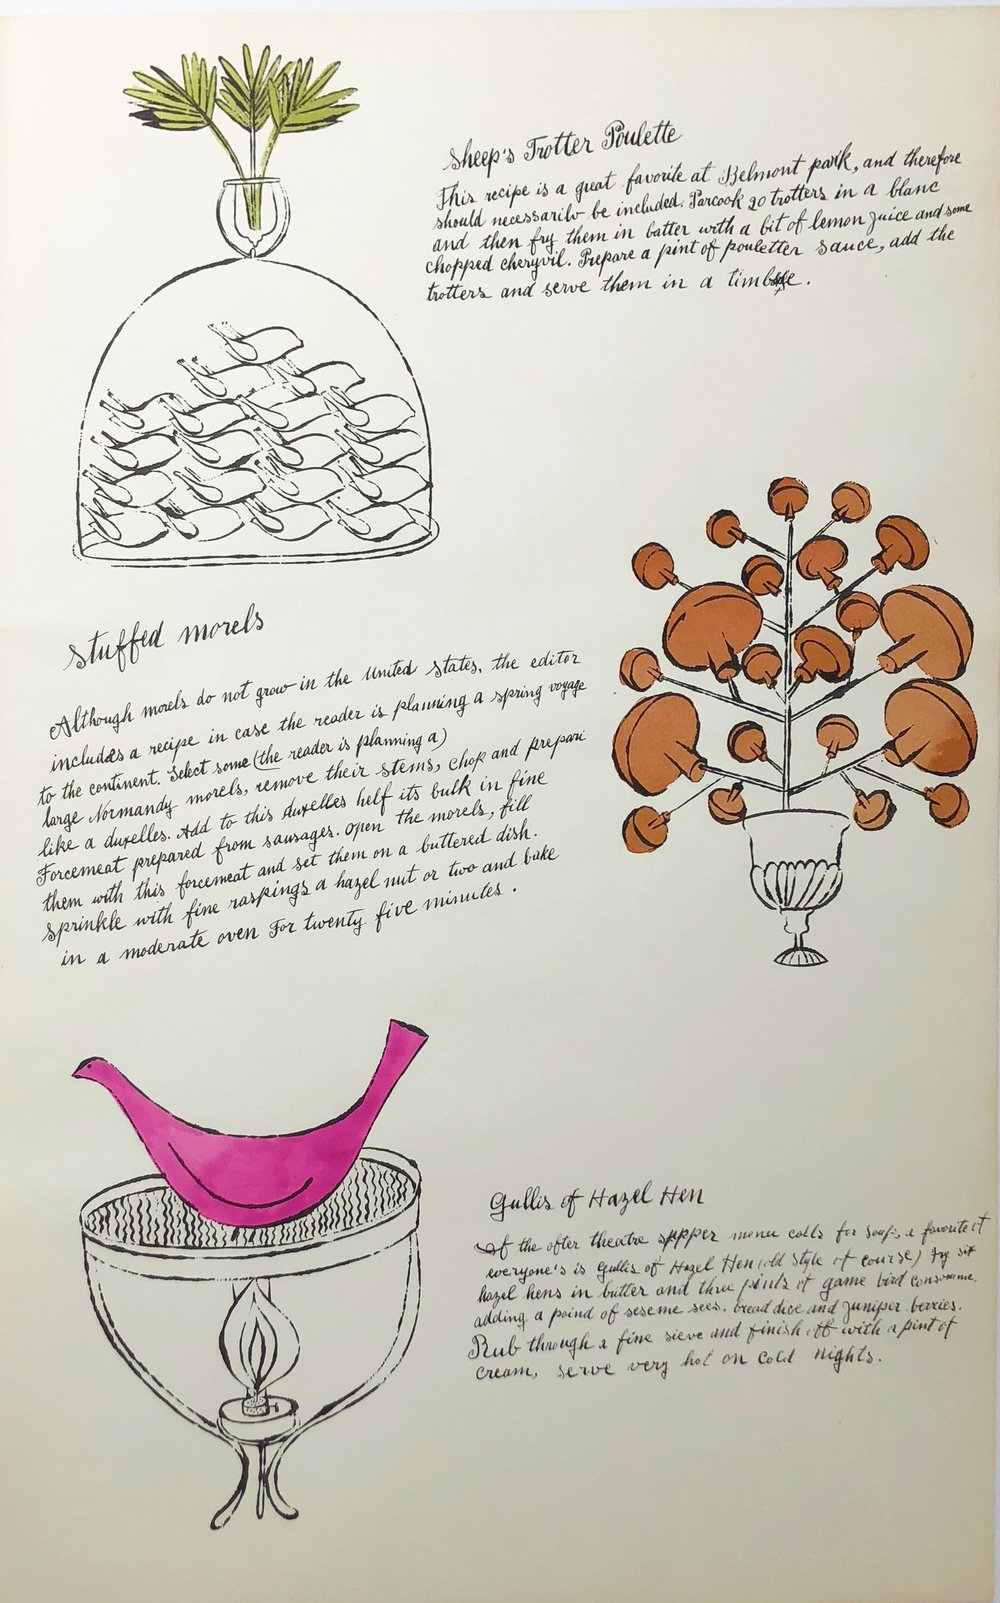 Sheep's Trotter Poulette
This recipe is a great favorite at Belmont park, and therefore
should necessarilv be included. Parcook 20 trotters in a blanc
and then fry them in batter with a bit of lemon juice and some
chopped cheryvil. Prepare a pint of pouletter sauce, add the
trotters and serve them in a timbale.
Stuffed morels
Although morels do not grow in the United States, the editor
includes a recipe in case the reader is planning a spring voyage
to the continent. Select some (the reader is planning a)
large Normandy morels, remove their stems, chop and prepari
like a duxelles. Add to this duxelles helf its bulk in fine
Forcemeat prepared from sausages. Open the morels, fill
them with this forcemeat and set them on a buttered dish.
Sprinkle with fine raspings a hazel nut or two and bake
in a moderate oven For twenty five minutes.
Gullis of Hazel Hen
If the ofter theatre supper menu calls for soup, a favorite of
everyone's is Gullis of Hazel Hen (old style of course) fry six
hazel hens in butter and three pints of game bird consomme.
adding a poind of seseme sees, bread dice and juniper berries.
Rub through a fine sieve and finish off with a pint of
cream, serve very hot on cold nights.